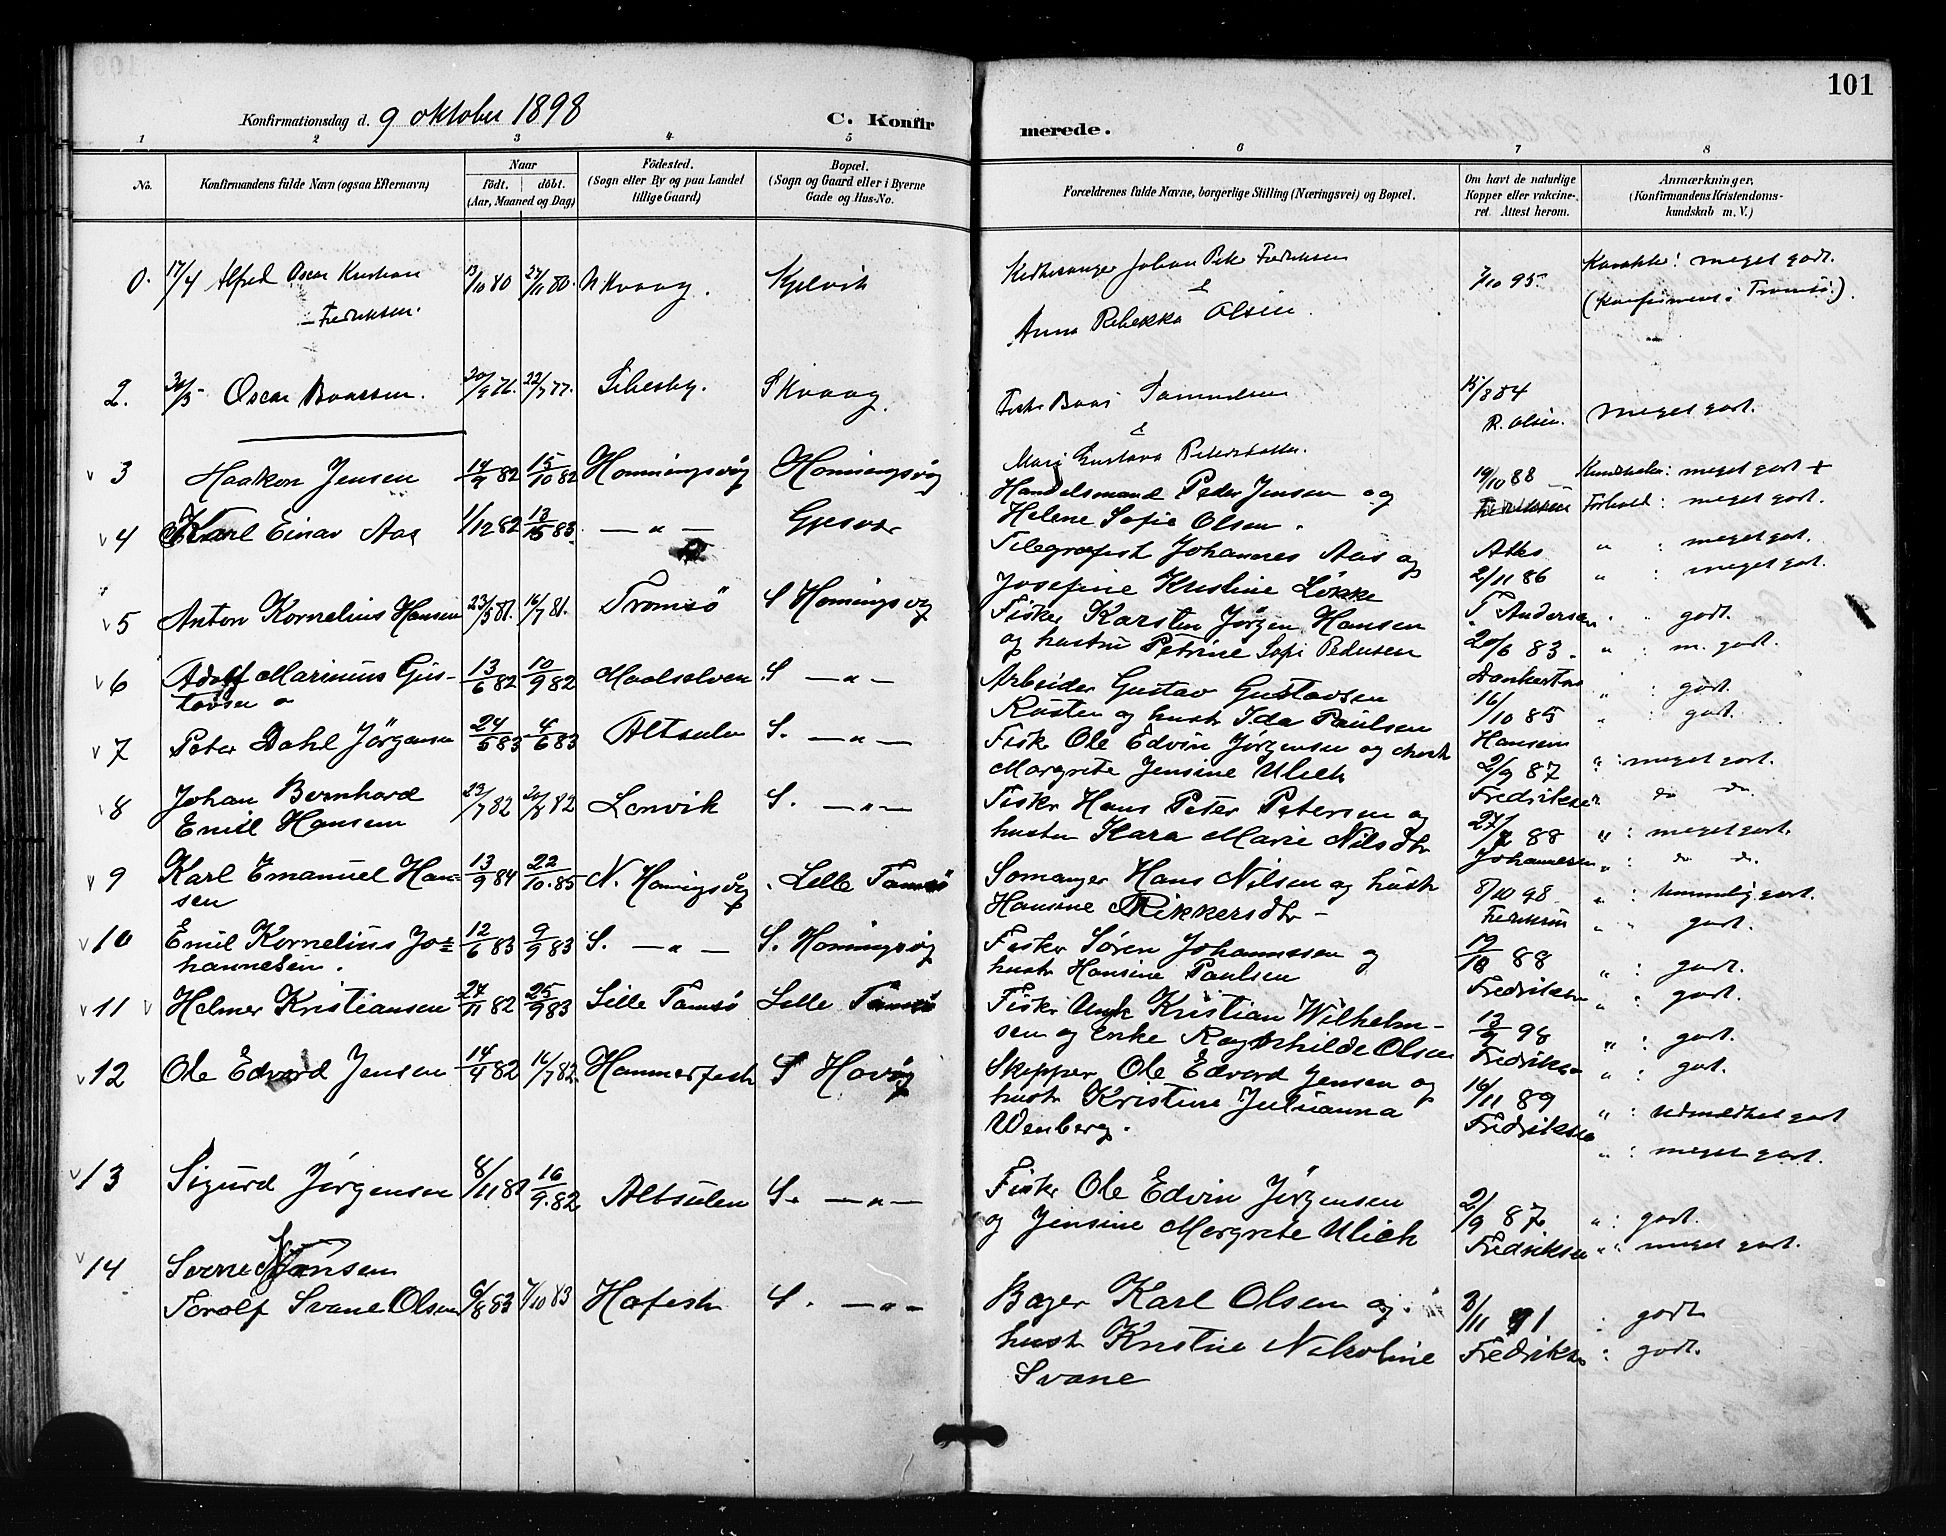 101
Konfirmationsdag d. 9 oktober 1898
C. Konfir
merede.
1 2 3 4 5 6 7 8
No.
Konfirmandens fulde Navn (ogsaa Efternavn)
Naar
födt. döbt.
(Aar, Maaned og Dag)
Födested.
(Sogn eller By og paa Landet
tillige Gaard)
Bopæl.
(Sogn og Gaard eller i Byerne
Gade og Hus-No.
Forældrenes fulde Navne, borgerlige Stilling (Næringsvei) og Bopæl.
Om havt de naturlige
Kopper eller vakcine-
ret. Attest herom.
Anmærkninger,
(Konfirmandens Kristendoms-
kundskab m. V.)
0. 17/4 Alfred Oscar Kristian 13/10 80 27/11 80. Kvaag. Kjelvik
Fedriksen.
Johan Fedriksen
&
Anna Rebekka Olsen.
7/10 95. meget godt.
(Konfirmeret i Tromsö.)
2. Oscar Baassen. 20/9 76. 22/7 77. Lebesby. S Kvaag.
Baas Samuelsen
&
Gustava Petersdatter.
15/8 84
R. Olsen. meget godt.
3 Haakon Jensen 14/9 82 15/10 82 Honningsvåg Honingsvåg
Handelsmand Peder Jensen og
Helene Sofie Olsen.
19/10 88 Kundskaber: meget godt +
Fedriksen Forhold: meget godt.
4 Karl Einar Aas 1/12 82 — " — Gjesvær
Telegrafist Johannes Aas og
Josefine Kristine Løkke
Attes " : meget godt.
2/11 86 " : meget godt.
5 Anton Kornelius Hansen 23/5 81. 16/7 81. Tromsö S Honingsvåg
Fisker Karsten Jørgen Hansen
og hustru Petrine Sofie Pedersen
T. Andersen " godt.
20/6 83. " : m. godt.
6 Adolf Marinius Gus-
tavsen 13/6 82 10/9 82 Maalselven S — " —
Arbeider Gustav Gustavsen
Rosten og hustr Ida Paulsen
" : godt.
16/10 85 " : godt.
7 Peter Dahl Jörgensen 24/5 83 4/6 83 Altsulen S. — " —
Fisker Ole Edvin Jørgensen og hustr
Margrete Jensine Ulich
Hansen " : meget godt.
2/9 87
8 Johan Bernhard
Emil Hansen 23/7 82 Lenvik S. — " —
Fisker Hans Peter Petersen og
hustru Kara Marie Nilsdtr
Fredriksen do do.
88 " : meget godt.
9 Karl Emanuel Han-
sen 13/9 84 22/10 85 N. Honigsvåg Lille Tamsö
Hans Nilsen og hustr
Hansine Rikkersdtr —
Johannesen " : do do.
8/10 98. " : temmelig godt.
10 Emil Kornelius Jo-
hannesen. 12/6 83 9/9 83 S. — " — S. Honingsvåg
Fisker Søren Johannessen og
hustr Hansine Paulsen
Fedriksen " " godt.
19/10 88 " : godt.
11 Helmer Kristiansen 24/11 82 25/9 83 Lille Tamsö Lille Tamsö
Fisker Kristian Wilhelm-
sen og enke Ragnhilde Olsen
Fredriksen " : godt.
13/9 98 " : godt.
12 Ole Edvard Jensen 14/4 82 16/7 82. Hammerfest S Hovåg
Skipper Ole Edvard Jensen og
hustr Kristine Julianna
Wenberg.
Fredriksen " : godt.
16/11 89 " : udmærket godt
Fredriksen " : meget godt.
13 Sigurd Jørgensen 8/11 81 16/9 82 Altsulen S. — " —
Fisker Ole Edvin Jørgensen
og Jensine Margrete Ulich
2/9 87. " : godt.
Fredriksen " : meget godt.
14
Torolf Svane Olsen 6/8 83 7/10 83 Hafest S. — " —
Bager Karl Olsen og
hustr Kristine Nikoline
Svane
: godt
Fredriksen : godt.